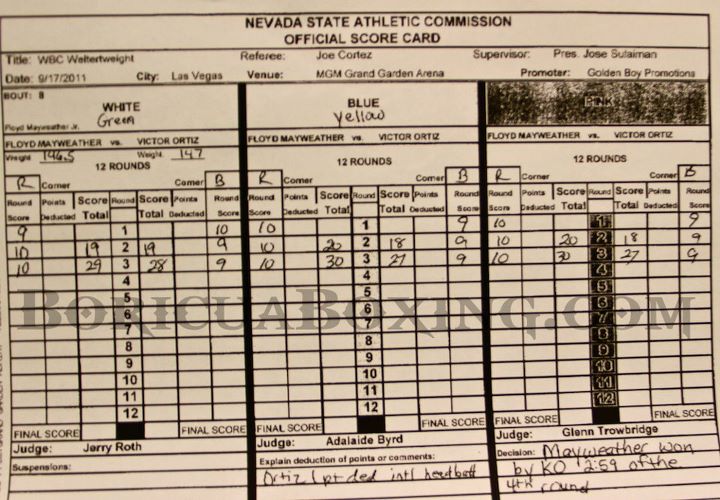 NEVADA STATE ATHLETIC COMMISSION
OFFICIAL SCORE CARD
Title: WBC Welterweight Referee: Joe Cortez Supervisor: Pres. Jose Sulaiman
Date: 9/17/2011 City: Las Vegas Venue: MGM Grand Garden Arena Promoter: Golden Boy Promotions
BOUT: 8
WHITE BLUE PINK
Green Yellow
Floyd Mayweather Jr.
FLOYD MAYWEATHER vs. VICTOR ORTIZ FLOYD MAYWEATHER vs. VICTOR ORTIZ FLOYD MAYWEATHER vs. VICTOR ORTIZ
Weight 146.5 Weight 147
12 ROUNDS 12 ROUNDS 12 ROUNDS
R Corner Corner B R Corner Corner B R Corner Corner B
Round Score Points Deducted Score Total Round Score Total Points Deducted Round Score Round Score Points Deducted Score Total Round Score Total Points Deducted Round Score Round Score Points Deducted Score Total Round Score Total Points Deducted Round Score
9 1 10 10 1 9 10 1 9
10 19 2 19 9 10 20 2 18 9 10 20 2 18 9
10 29 3 28 9 10 30 3 27 9 10 30 3 27 9
4 4 4
5 5 5
6 6 6
BORICUABOXING.COM
7 7 7
8 8 8
9 9 9
10 10 10
11 11 11
12 12 12
FINAL SCORE FINAL SCORE FINAL SCORE FINAL SCORE FINAL SCORE FINAL SCORE
Judge: Jerry Roth Judge: Adalaide Byrd Judge: Glenn Trowbridge
Suspensions: Explain deduction of points or comments: Decision: Mayweather won
Ortiz 1 pt ded intl headbutt by KO 2:59 of the
4th round